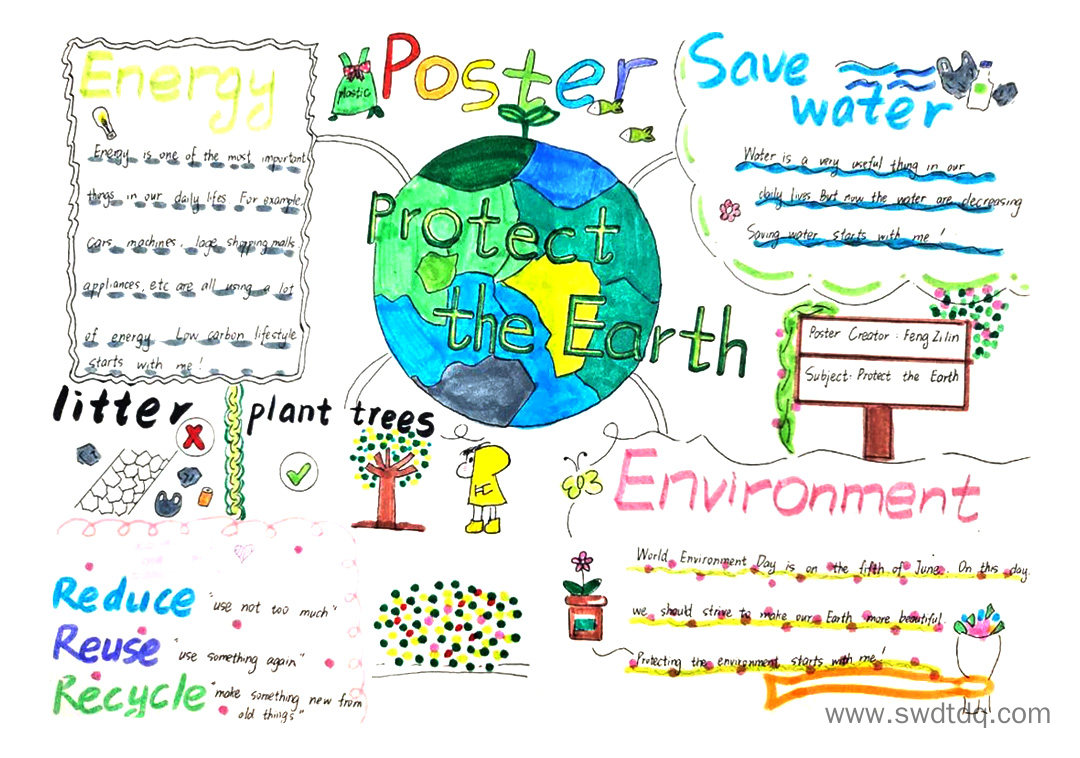 Poster
Protect
the Earth
plastic
Energy
Energy is one of the most important
things in our daily lifes For example,
cars, machines, lage shopping malls
appliances, etc are all using a lot
of energy. Low carbon lifestyle
starts with me!
Save
water
Water is a very useful thing in our
daily lives But now the water are decreasing
Saving water starts with me!
Poster Creator: Feng Zilin
Subject: Protect the Earth
litter
plant trees
Reduce "use not too much"
Reuse "use something again"
Recycle "make something new from
old things"
Environment
World Environment Day is on the fifth of June. On this day.
we should strive to make our Earth more beautiful.
Protecting the environment starts with me!
www.swdtdq.com